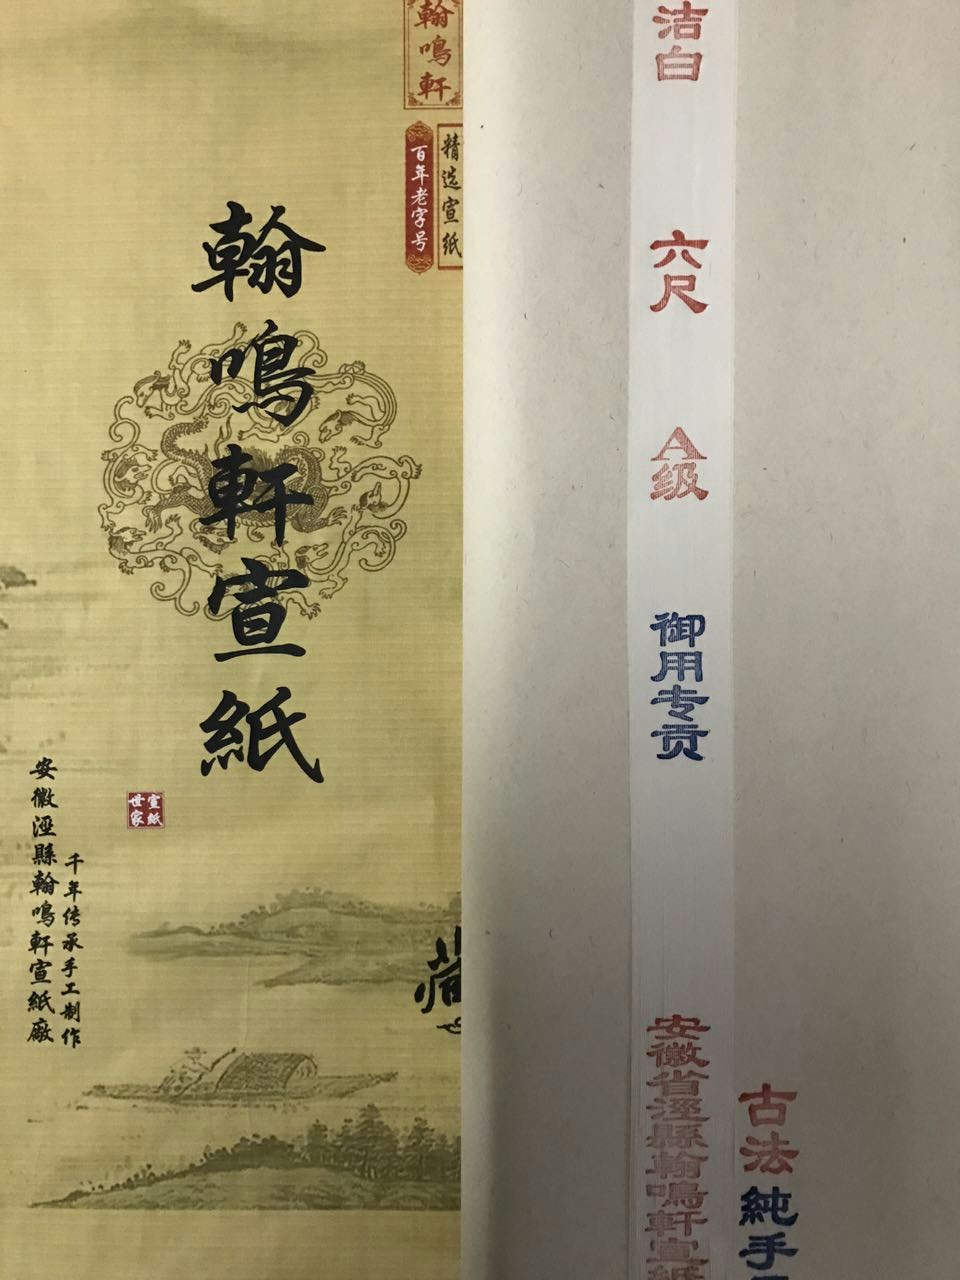 翰鳴軒
精选宣纸
百年老字号
翰鳴軒宣紙
宣紙
世家
千年传承手工制作
安徽涇縣翰鳴軒宣紙廠
洁白
六尺
A级
御用专贡
安徽省涇縣翰鳴軒宣紙
古法純手